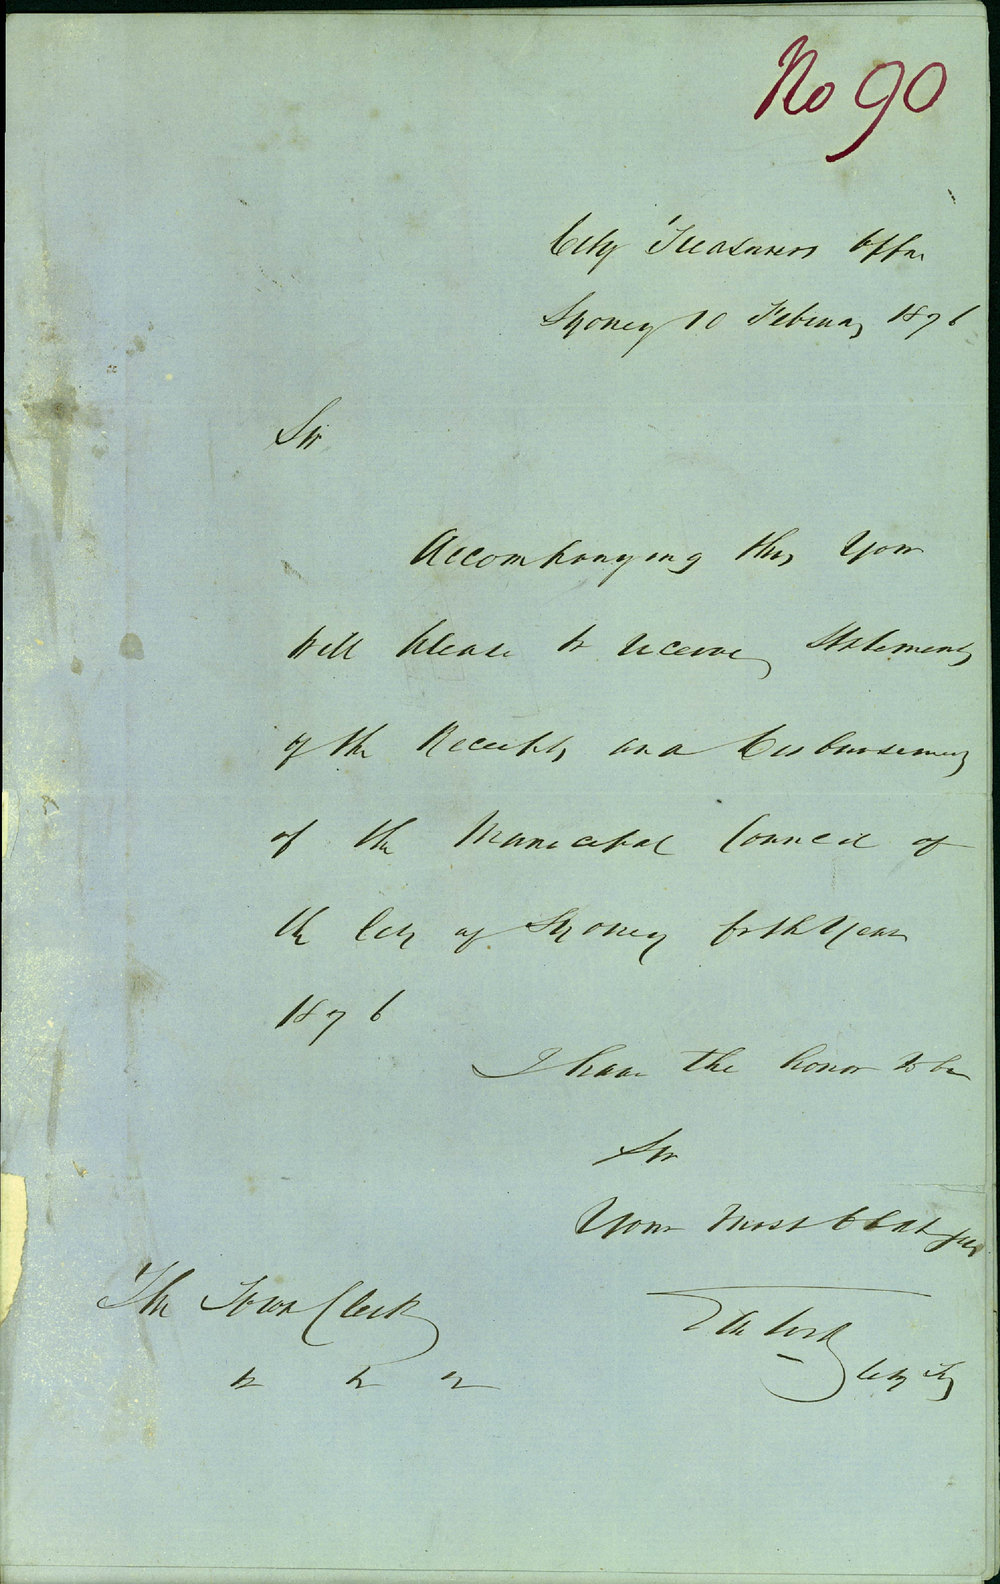 No 90
City Treasurers Office
Sydney 10 February 1876
Sir
Accompanying this You
will please to receive Statements
of the Receipts and Disbursements
of the Municipal Council of
the City of Sydney for the Year
1876
I have the honor to be
Sir
Your most Obdt Ser
The Town Clerk
City Try